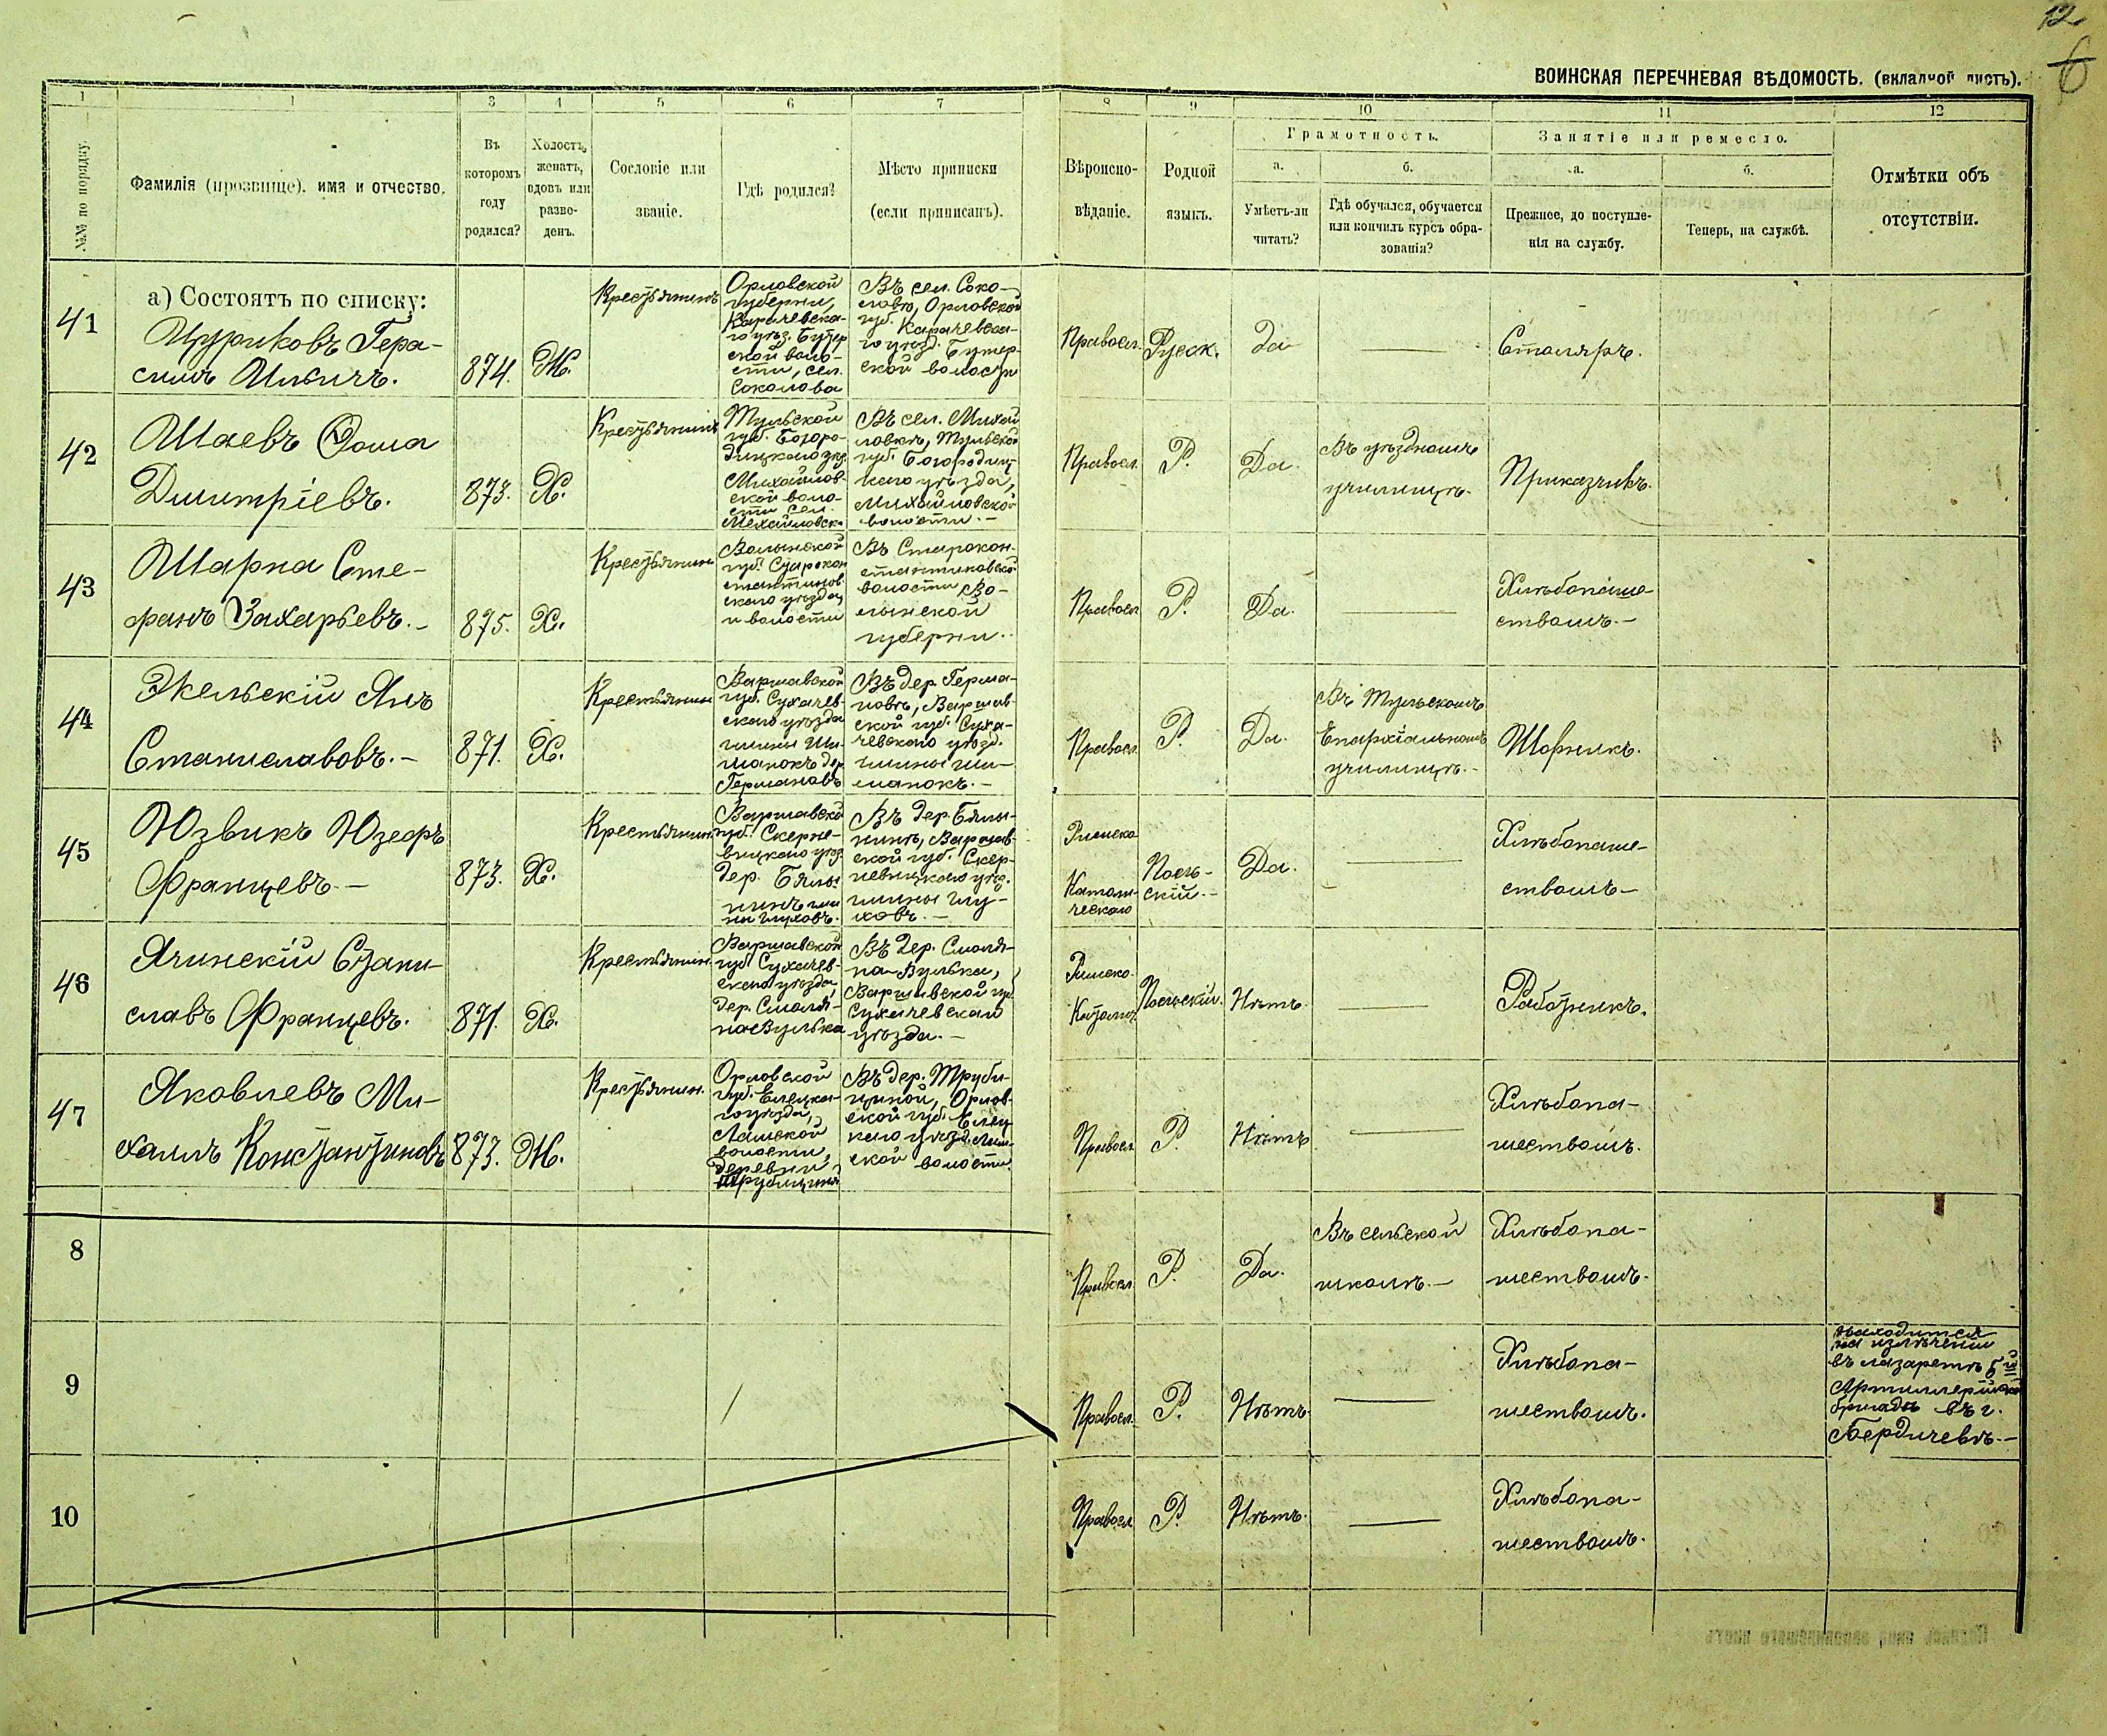 12
6
ВОИНСКАЯ ПЕРЕЧНЕВАЯ ВѢДОМОСТЬ. (вкладной листъ).
1 1 3 4 5 6 7 8 9 10 11 12
№№ по порядку.
Фамилія (прозвище), имя и отчество.
Въ
которомъ
году
родился?
Холостъ,
женатъ,
вдовъ или
разве-
денъ.
Сословіе или
званіе.
Гдѣ родился?
Мѣсто приписки
(если приписанъ).
Вѣроиспо-
вѣданіе.
Родной
языкъ.
Грамотность.
а.
Умѣетъ-ли
читать?
б.
Гдѣ обучался, обучается
или кончилъ курсъ обра-
зованія?
Занятіе или ремесло.
а.
Прежнее, до поступле-
нія на службу.
б.
Теперь, на службѣ.
Отмѣтки объ
отсутствіи.
а) Состоятъ по списку:
41
Цуриковъ Гера-
симъ Ильичъ.
874.
Ж.
Крестьянинъ
Орловской
губерни,
Карачевска-
го уѣз. Бутер
ской воло-
сти, сел.
Соколова
Въ сел. Соко-
ловѣ, Орловской
губ. Карачевска-
го уѣзд. Бутер-
ской волости
Правосл.
Русск.
Да
—
Столяръ.
42
Шаевъ Ѳома
Дмитріевъ.
873.
Х.
Крестьянинъ
Тульской
губ. Богоро-
дицкого уѣз.
Михайлов-
ской воло-
сти сел.
Михайловск.
Въ сел. Михай
ловкѣ, Тульской
губ. Богородиц-
каго уѣзда,
Михайловской
волости.—
Правосл.
Р.
Да.
Въ уѣздномъ
училищѣ.
Приказчикъ.
43
Шарпа Сте-
фанъ Захарьевъ.—
875.
Х.
Крестьянин
Волынской
губ. Старокон
стантинов
скаго уѣзда,
и волости
Въ Старокон-
стантиновской
волости, Во-
лынской
губерни.
Правосл.
Р.
Да.
—
Хлѣбопаше-
ствомъ.—
44
Экельскій Янъ
Станиславовъ.—
871.
Х.
Крестьянин
Варшавской
губ. Сухачев-
скаго уѣзда
гмины Ши-
манокъ дер
Германовъ
Въ дер. Герма-
новѣ, Варшав-
ской губ. Суха-
чевского уѣзд.
гмины Ши-
манокъ.—
Правосл.
Р.
Да.
Въ Тульскомъ
Епархіальномъ
училищѣ.—
Шорникъ.
45
Юзвикъ Юзефъ
Францевъ.—
873.
Х.
Крестьянин.
Варшавской
губ. Скерне-
вицкаго уѣз.
дер. Бялы-
нинъ гми
ны Глуховъ.
Въ дер. Бялы-
нинѣ, Варшав-
ской губ. Скер-
невицкаго уѣз.
гмины Глу-
ховъ.—
Римско
Католи-
ческаго
Поль-
скій.—
Да.
—
Хлѣбопаше-
ствомъ—
46
Ячинскій Стани-
славъ Францевъ.
871.
Х.
Крестьянин.
Варшавской
губ. Сухачев-
скаго уѣзда,
дер. Смоля-
на Вулька
Въ дер. Смоля-
на-Вулька,
Варшавской губ.
Сухачевскаго
уѣзда.—
Римско.
Католич.
Польскій.
Нѣтъ.
—
Работникъ.
47
Яковлевъ Ми-
хаилъ Константиновъ
873.
Ж.
Крестьянин.
Орловской
губ. Елецка-
го уѣзда,
Ламской
волости,
деревни
Трубицина
Въ дер. Труби-
циной, Орлов-
ской губ. Елец
каго уѣзд. Лам-
ской волости.
Правосл.
Р.
Нѣтъ
—
Хлѣбопа-
шествомъ.
8
Правосл.
Р.
Да.
Въ сельской
школѣ.—
Хлѣбопа-
шествомъ.
9
Правосл.
Р.
Нѣтъ.
—
Хлѣбопа-
шествомъ.
находится
на излѣченіи
въ лазаретѣ 5й
Артиллерійской
бригады въ г.
Бердичевѣ.—
10
Правосл
Р.
Нѣтъ.
—
Хлѣбопа-
шествомъ.